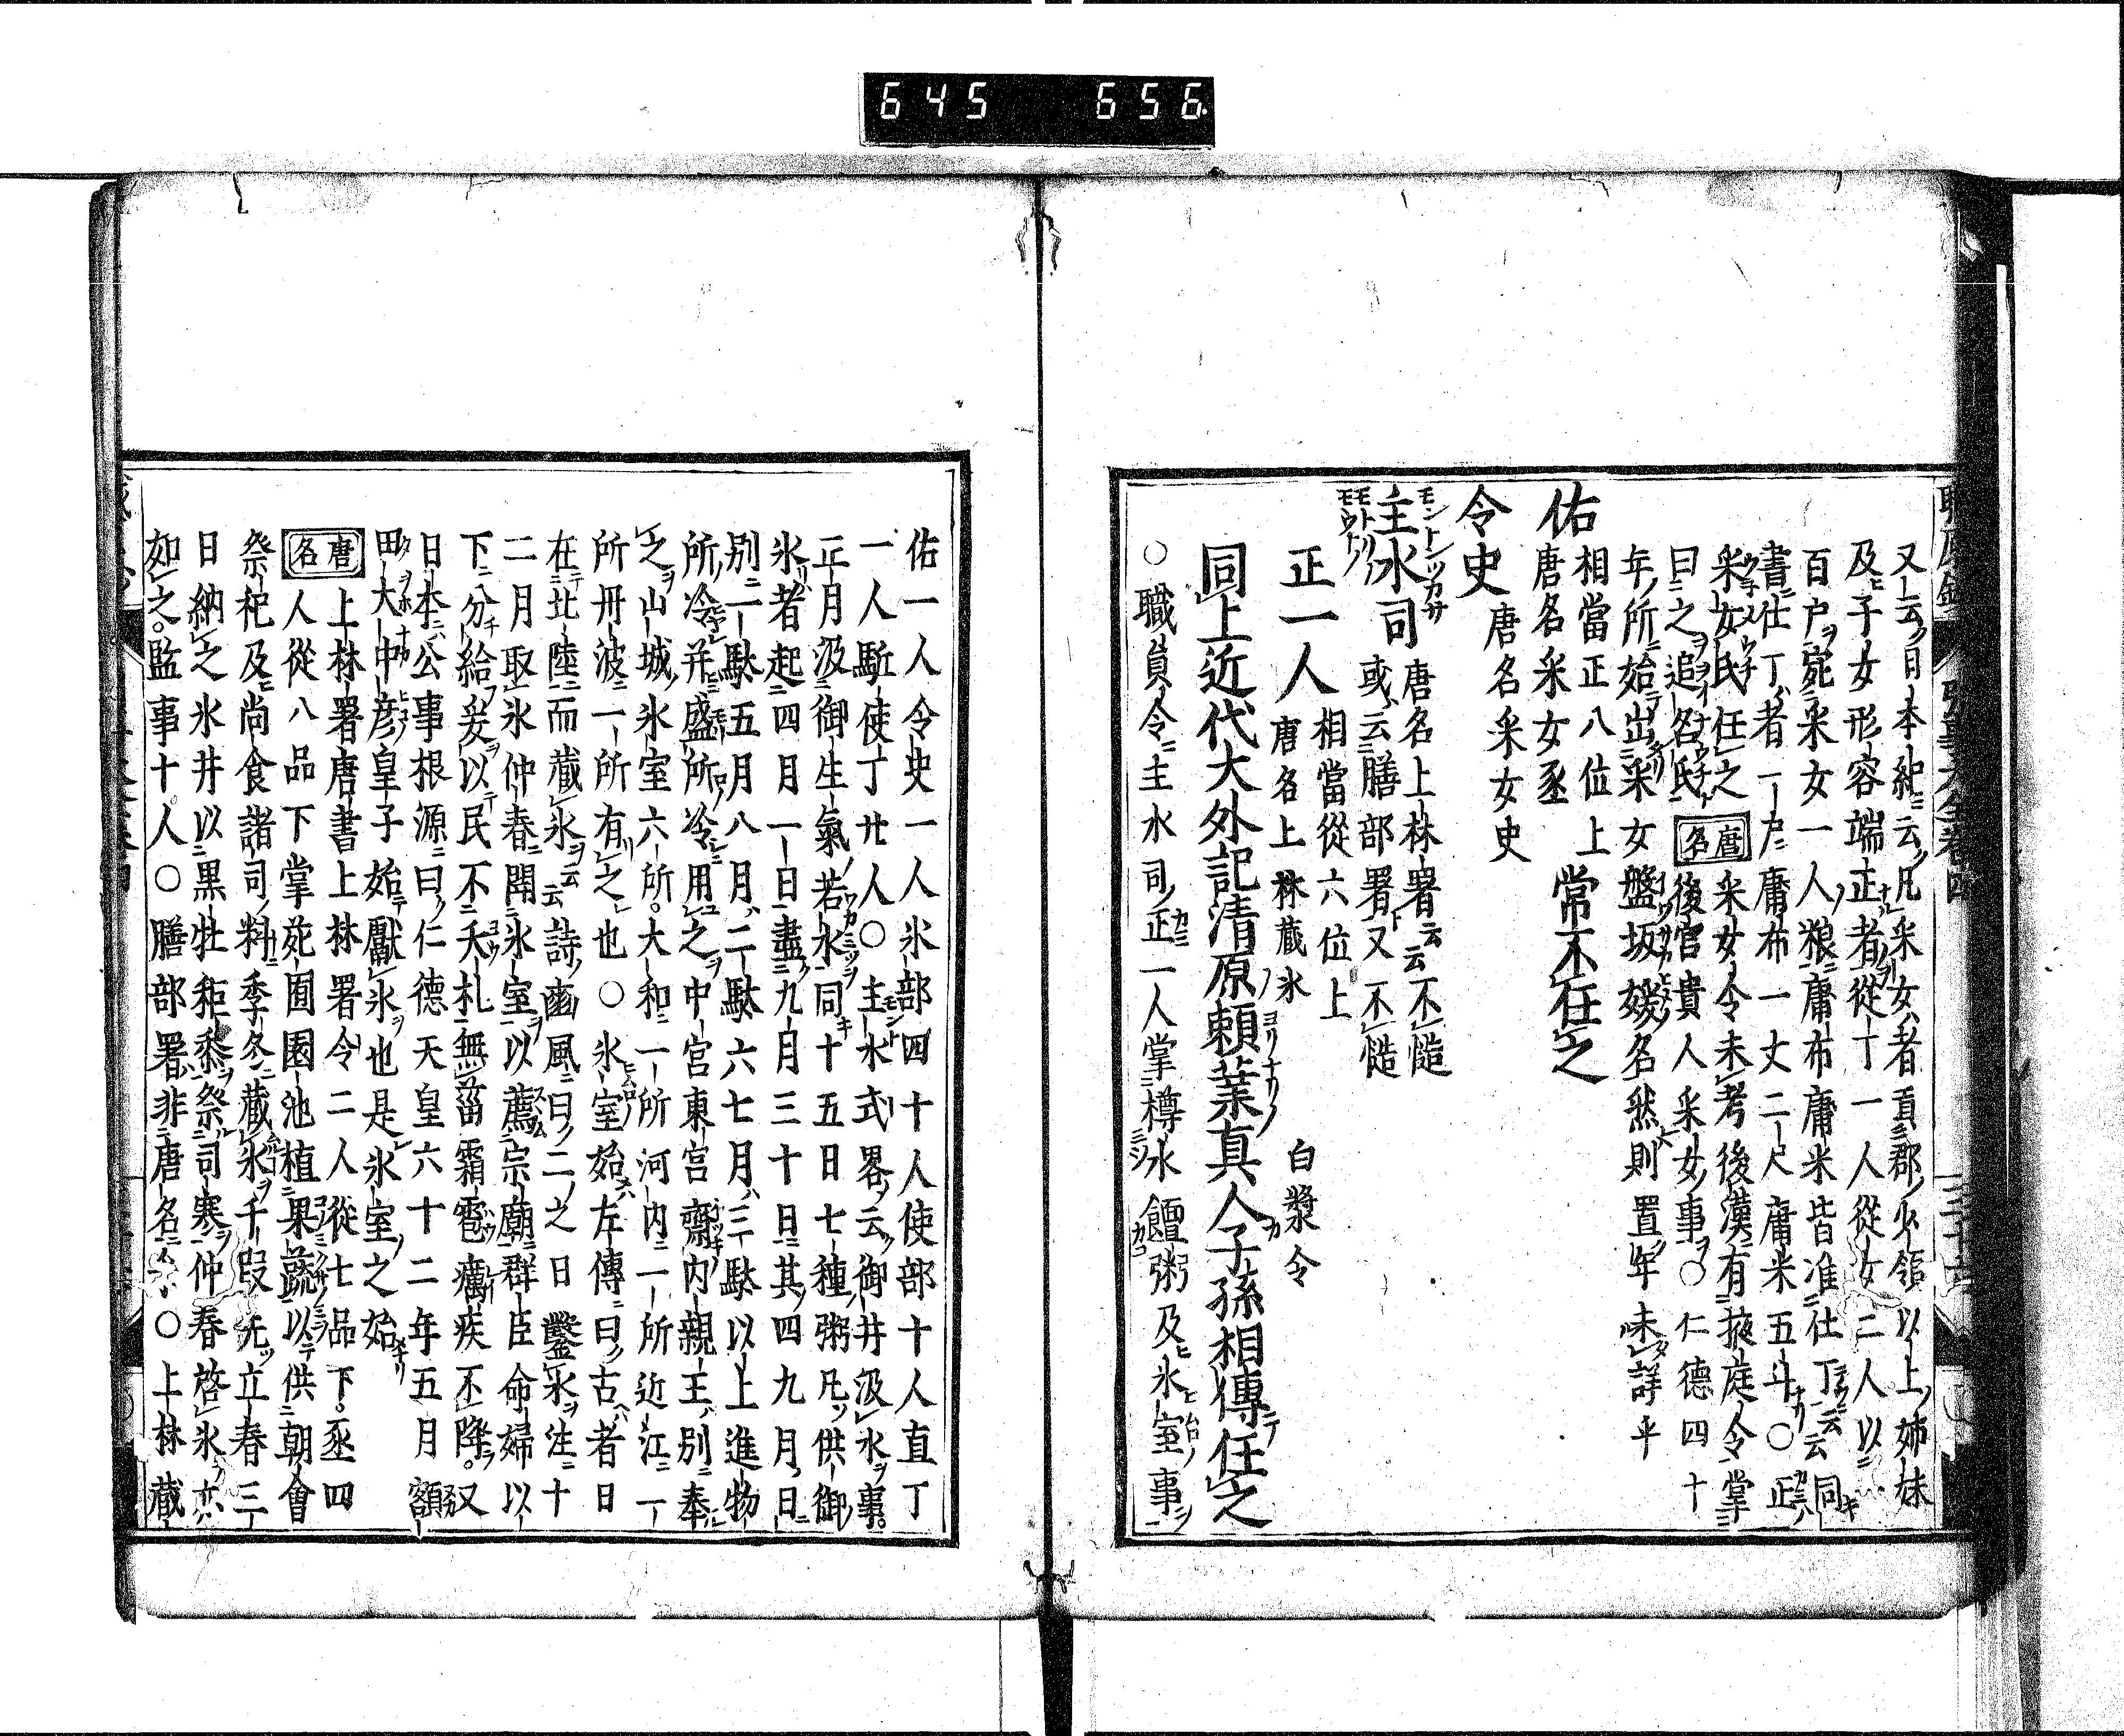 645 656
又云日本紀云凡采女者貢郡少領以上姉妹
及子女形容端正者從丁一人從女二人以
百戸宛采女一人粮庸布庸米皆准仕丁云云同
書仕丁者一丁庸布一丈二尺庸米五斗○正
采女氏任之唐名采女令未考後漢有掖庭令掌
曰之追名氏後宮貴人采女事○仁德四十
年所始出采女盤坂媛名然則置年未詳乎
佑
相當正八位上
唐名采女丞
常不任之
令史
唐名采女史
モントンツカサ
主水司
唐名上林署云云不慥
或云膳部署又不慥
正一人
相當從六位上
唐名上林藏氷
白漿令
同上近代大外記清原頼業真人子孫相傳任之
○職員令主水司正一人掌樽水饘粥及氷室事
佑一人令史一人氷部四十人使部十人直丁
一人駈使丁廿人○主水式畧云御井汲水事。
正月汲御生氣若水同十五日七種粥凡供御
氷者起四月一日盡九月三十日其四九月日
別一駄五月八月二駄六七月三駄以上進物
所冷并盛所冷用之中宮東宮齋内親王別奉
之山城氷室六所。大和一所河内一所近江一
所丹波一所有之也○氷室始左傳曰古者日
在北陸而藏氷云云詩豳風曰二之日鑿氷注十
二月取氷仲春開氷室以薦宗廟群臣命婦以
下分給爰以民不夭札無菑霜雹癘疾不降。又
日本公事根源曰仁德天皇六十二年五月額
田大中彦皇子始獻氷也是氷室之始
唐名上林署唐書上林署令二人從七品下。丞四
人從八品下掌苑囿園池植果蔬以供朝會
祭祀及尚食諸司料季冬藏氷千段先立春三
日納之氷井以黒牡秬黍祭司寒仲春啓氷亦
如之。監事十人○膳部署非唐名○上林藏